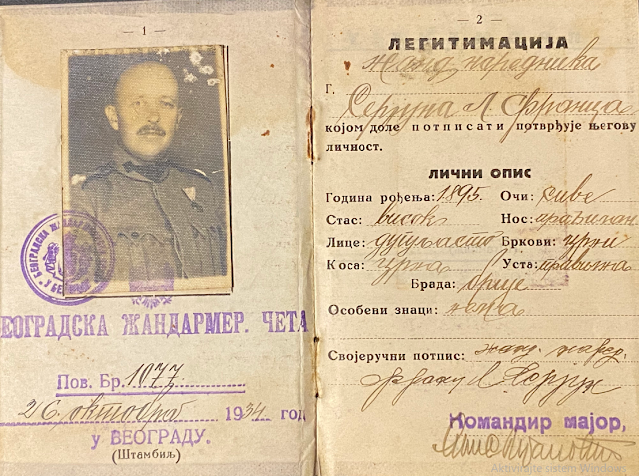 — 1 —
БЕОГРАДСКА ЖАНДАРМЕРИ
У БЕОГРАДУ
ЕОГРАДСКА ЖАНДАРМЕР. ЧЕТА
Пов. Бр. 1077
26. октобра 1934 год
у БЕОГРАДУ.
(Штамбиљ)
— 2 —
ЛЕГИТИМАЦИЈА
жанд. наредника
Г.
Л. Франца
којом доле потписати потврђује његову
личност.
ЛИЧНИ ОПИС
Година рођења: 1895. Очи: сиве
Стас: висок Нос: правилан
Лице: дугуљасто Бркови: црни
Коса: црна Уста: правилна
Брада: брије
Особени знаци: нема
Својеручни потпис: жанд. наред.
Командир мајор,
Aktivirajte sistem Windows